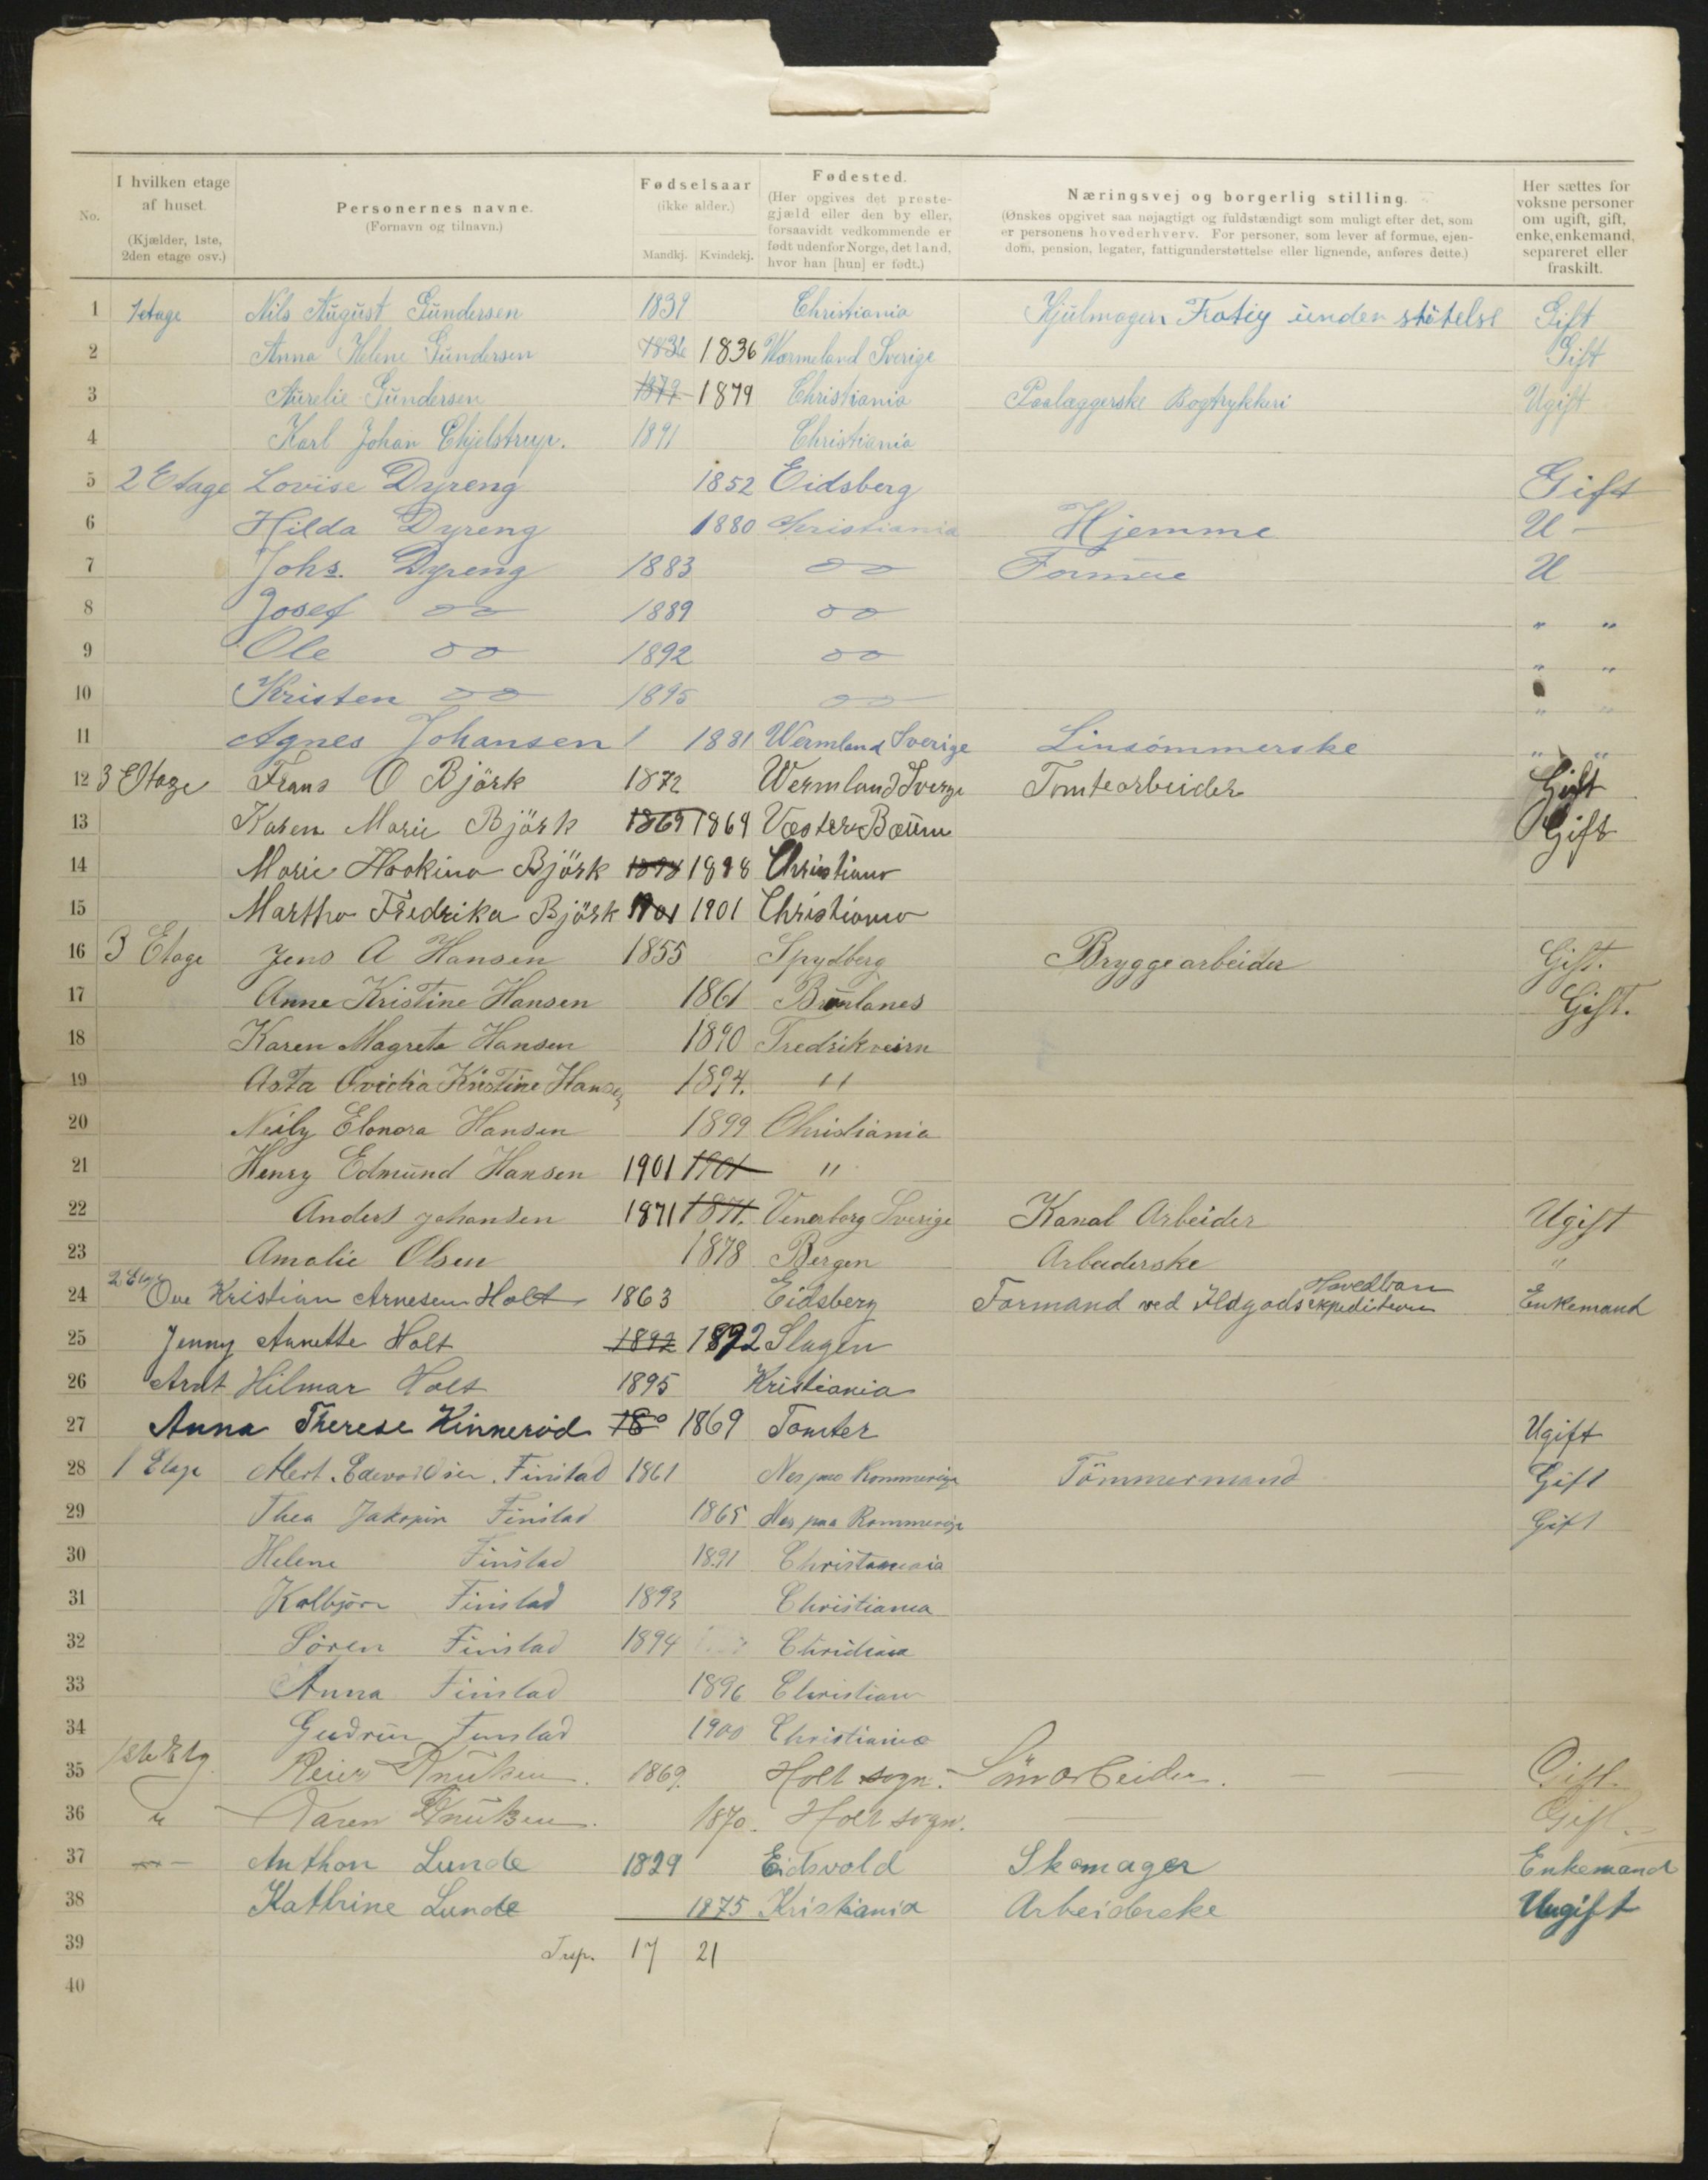 No.
I hvilken etage af huset.
(Kjælder, 1ste, 2den etage osv.)
Personernes navne.
(Fornavn og tilnavn.)
Fødselsaar
(ikke alder.)
Mandkj. Kvindekj.
Fødested.
(Her opgives det prestegjæld eller den by eller, forsaavidt vedkommende er født udenfor Norge, det land, hvor han [hun] er født.)
Næringsvej og borgerlig stilling.
(Ønskes opgivet saa nøjagtigt og fuldstændigt som muligt efter det, som er personens hovederhverv. For personer, som lever af formue, ejendom, pension, legater, fattigunderstøttelse eller lignende, anføres dette.)
Her sættes for voksne personer om ugift, gift, enke, enkemand, separeret eller fraskilt.
1 1 etage Nils August Gundersen 1839 Christiania Hjulmager Fatig understøtelse Gift
2 Anna Helene Gundersen 1836 1836 Wærmeland Sverige Gift
3 Aurelie Gundersen 1879 1879 Christiania Paalæggerske Bogtrykkeri Ugift
4 Karl Johan 1891 Christiania
5 2 Etage Lovise Dyreng 1852 Eidsberg Gift
6 Hilda Dyreng 1880 Christiania Hjemme U -
7 Johs. Dyreng 1883 do U
8 Josef do 1889 do " "
9 Ole do 1892 do " "
10 Kristen do 1895 do " "
11 Agnes Johansen 1881 Wermland Sverige Linsömmerske " "
12 3 Etage Frans O Björk 1872 Wermland Sverge Tomtearbeider Gift
13 Karen Marie Björk 1869 1869 Vester Bærum Gift
14 Marie Björk 1898 1898 Christiania
15 Martha Fredrika Björk 1901 1901 Christiania
16 3 Etage Jens A Hansen 1855 Spydberg Bryggearbeider Gift.
17 Anne Kristine Hansen 1861 Brunlanes Gift.
18 Karen Magrete Hansen 1890 Fredriksværn
19 Asta Ovidia Kristine Hansen 1894. "
20 Neily Elonora Hansen 1899 Christiania
21 Henry Edmund Hansen 1901 1901 "
22 Anders Johansen 1871 1871. Venerborg Sverige Kanal Arbeider Ugift
23 Amalie Olsen 1878 Bergen Arbeiderske "
24 2 Etage Ove Kristian Arnesen Holt 1863 Eidsberg Formand ved Ildgodsekspeditionen Hovedban Enkemand
25 Jenny Annette Holt 1892 1892 Slagen
26 Arnt Hilmar Holt 1895 Kristiania
27 Anna Therese Kinneröd 18 1869 Tomter Ugift
28 1 Etage Finstad 1861 Nes paa Rommerige Tömmermand Gift
29 Thea Jakopin Finstad 1865 Nes paa Rommerige Gift
30 Helene Finstad 1891 Christania
31 Kolbjörn Finstad 1893 Christiania
32 Sören Finstad 1894 Christiania
33 Anna Finstad 1896 Christiania
34 Gudrun Finstad 1900 Christiania
35 1ste Etg Knutsen. 1869. Holt sogn. Gift.
36 " Knutsen. 1870. Holt sogn. Gift.
37 Anthon Lunde 1829 Eidsvold Skomager Enkemand
38 Kathrine Lunde 1875 Kristiania Arbeiderske Ungift
39 Trsp. 17 21
40